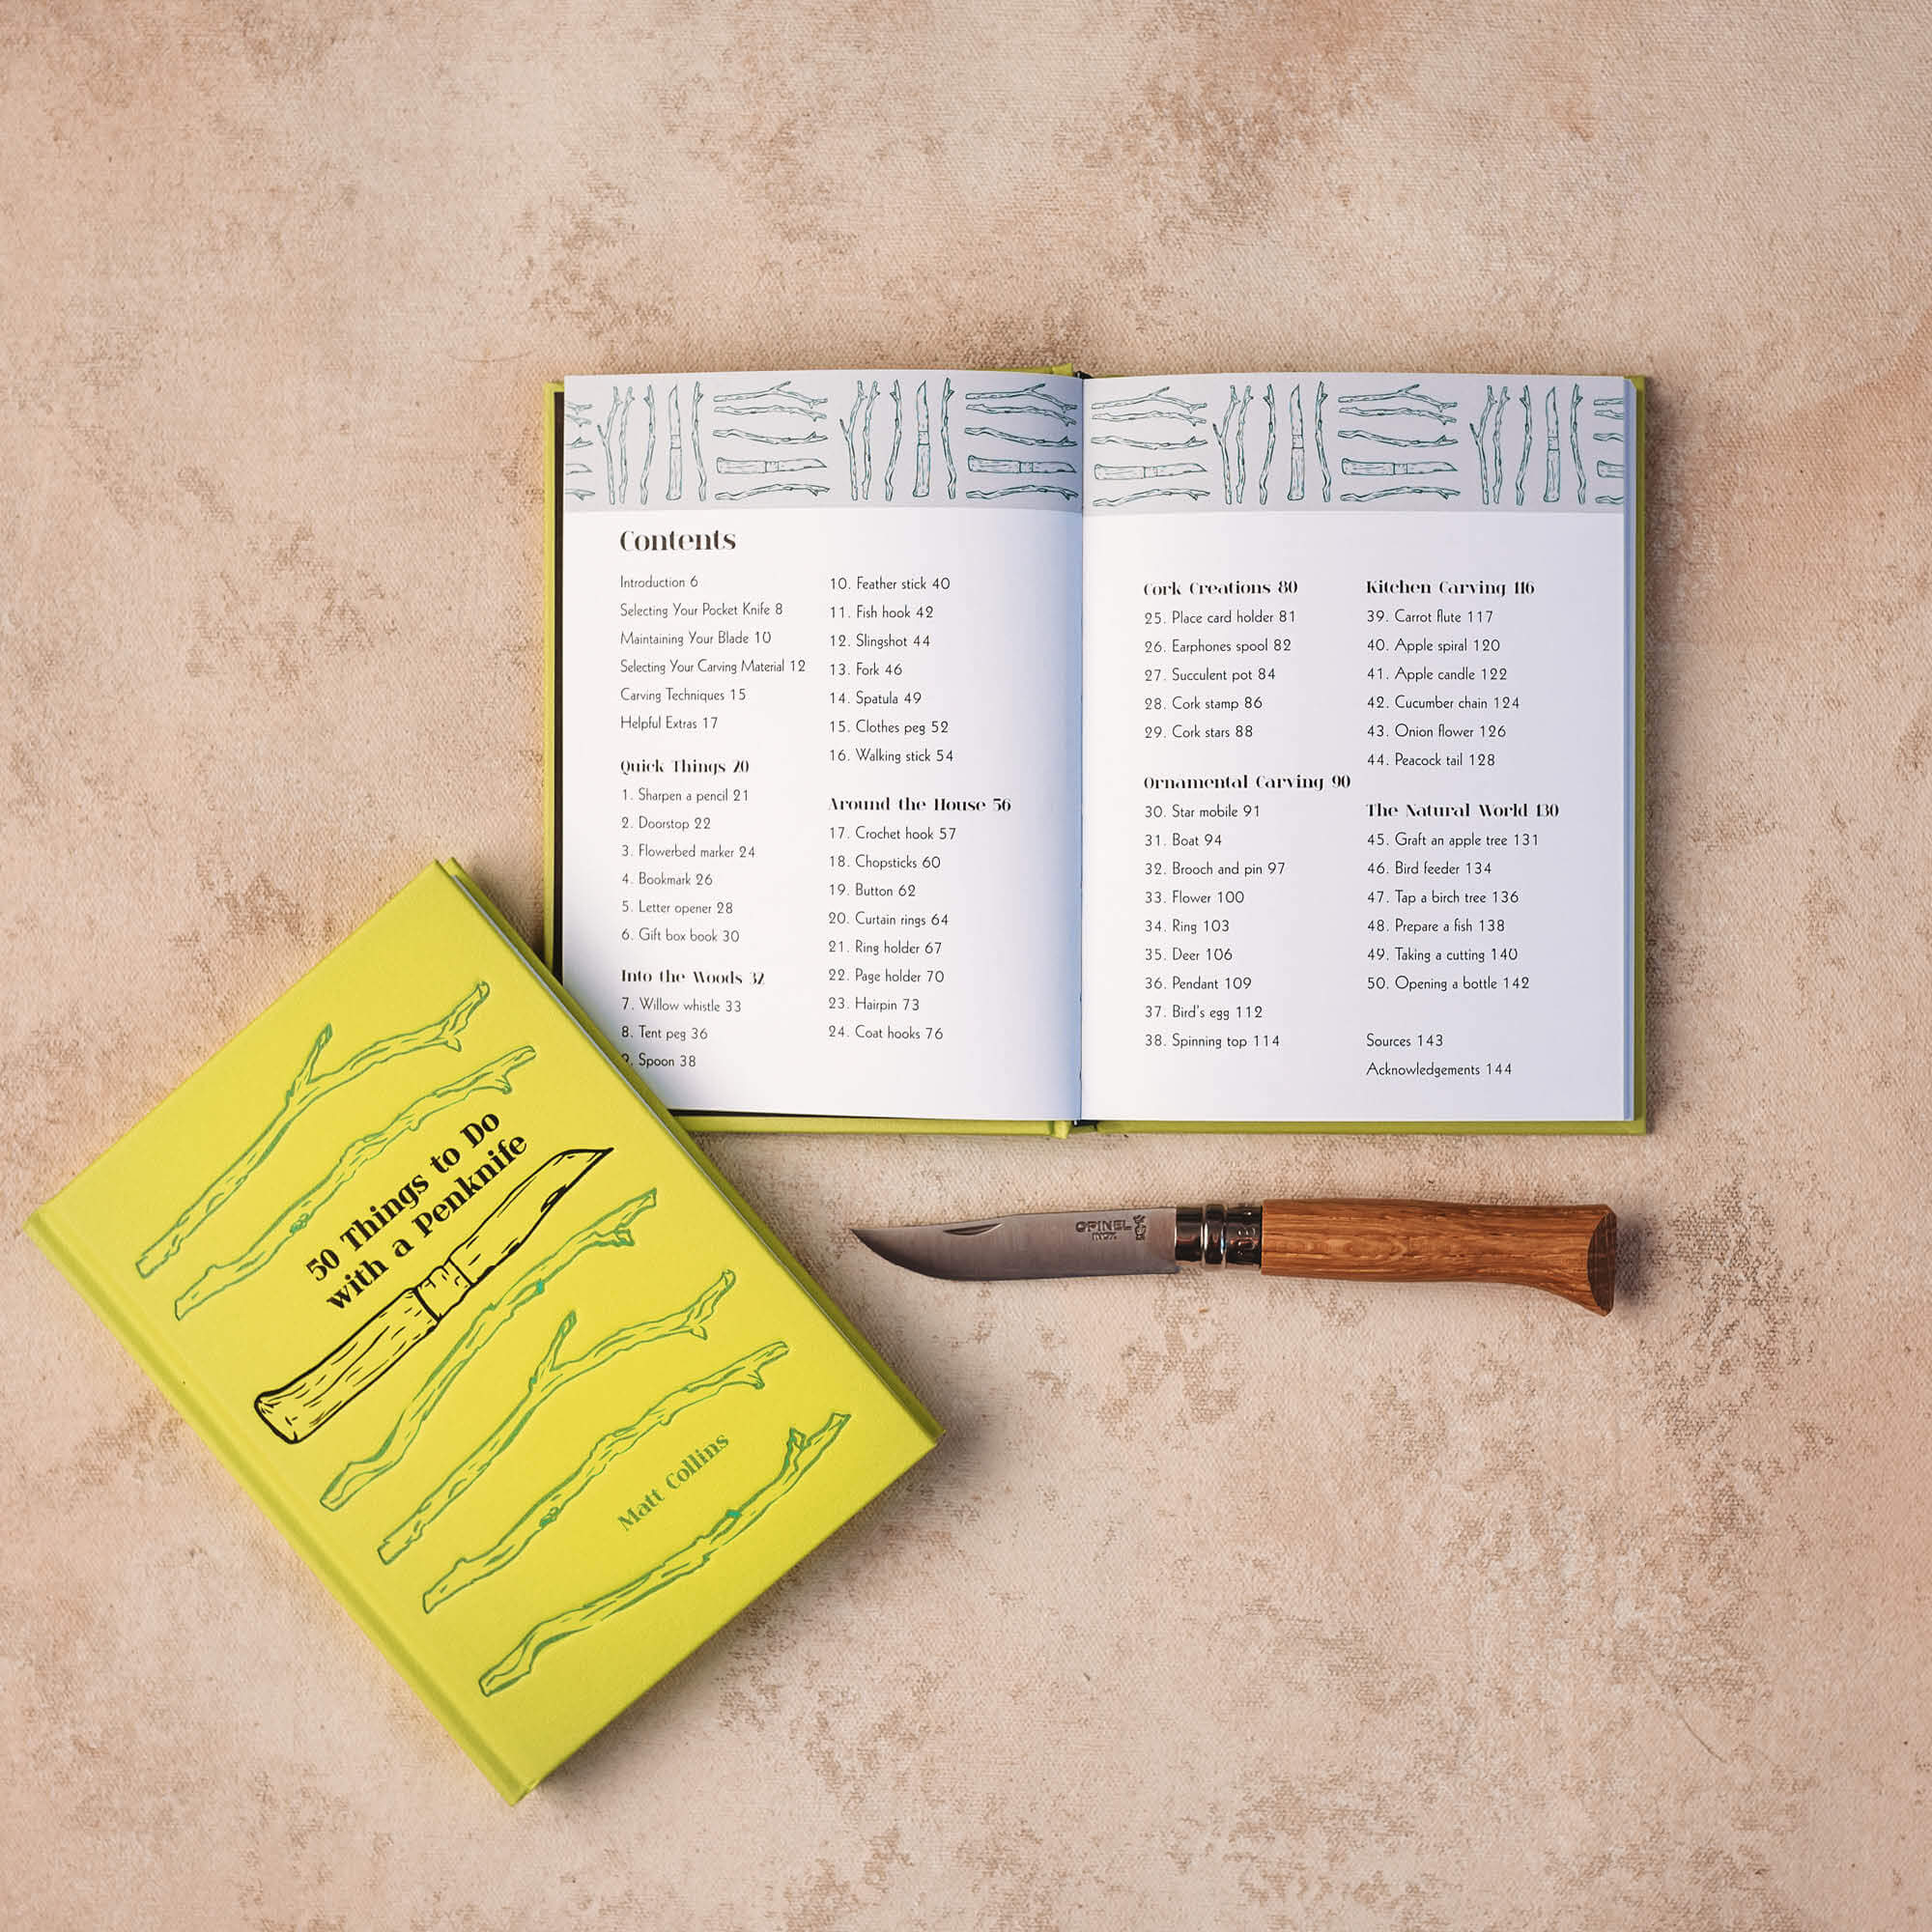 Contents
Introduction 6
Selecting Your Pocket Knife 8
Maintaining Your Blade 10
Selecting Your Carving Material 12
Carving Techniques 15
Helpful Extras 17
Quick Things 20
1. Sharpen a pencil 21
2. Doorstop 22
3. Flowerbed marker 24
4. Bookmark 26
5. Letter opener 28
6. Gift box book 30
Into the Woods 32
7. Willow whistle 33
8. Tent peg 36
9. Spoon 38
10. Feather stick 40
11. Fish hook 42
12. Slingshot 44
13. Fork 46
14. Spatula 49
15. Clothes peg 52
16. Walking stick 54
Around the House 56
17. Crochet hook 57
18. Chopsticks 60
19. Button 62
20. Curtain rings 64
21. Ring holder 67
22. Page holder 70
23. Hairpin 73
24. Coat hooks 76
Cork Creations 80
25. Place card holder 81
26. Earphones spool 82
27. Succulent pot 84
28. Cork stamp 86
29. Cork stars 88
Ornamental Carving 90
30. Star mobile 91
31. Boat 94
32. Brooch and pin 97
33. Flower 100
34. Ring 103
35. Deer 106
36. Pendant 109
37. Bird's egg 112
38. Spinning top 114
Kitchen Carving 116
39. Carrot flute 117
40. Apple spiral 120
41. Apple candle 122
42. Cucumber chain 124
43. Onion flower 126
44. Peacock tail 128
The Natural World 130
45. Graft an apple tree 131
46. Bird feeder 134
47. Tap a birch tree 136
48. Prepare a fish 138
49. Taking a cutting 140
50. Opening a bottle 142
Sources 143
Acknowledgements 144
50 Things to Do
with a Penknife
Matt Collins
OPINEL
INOX